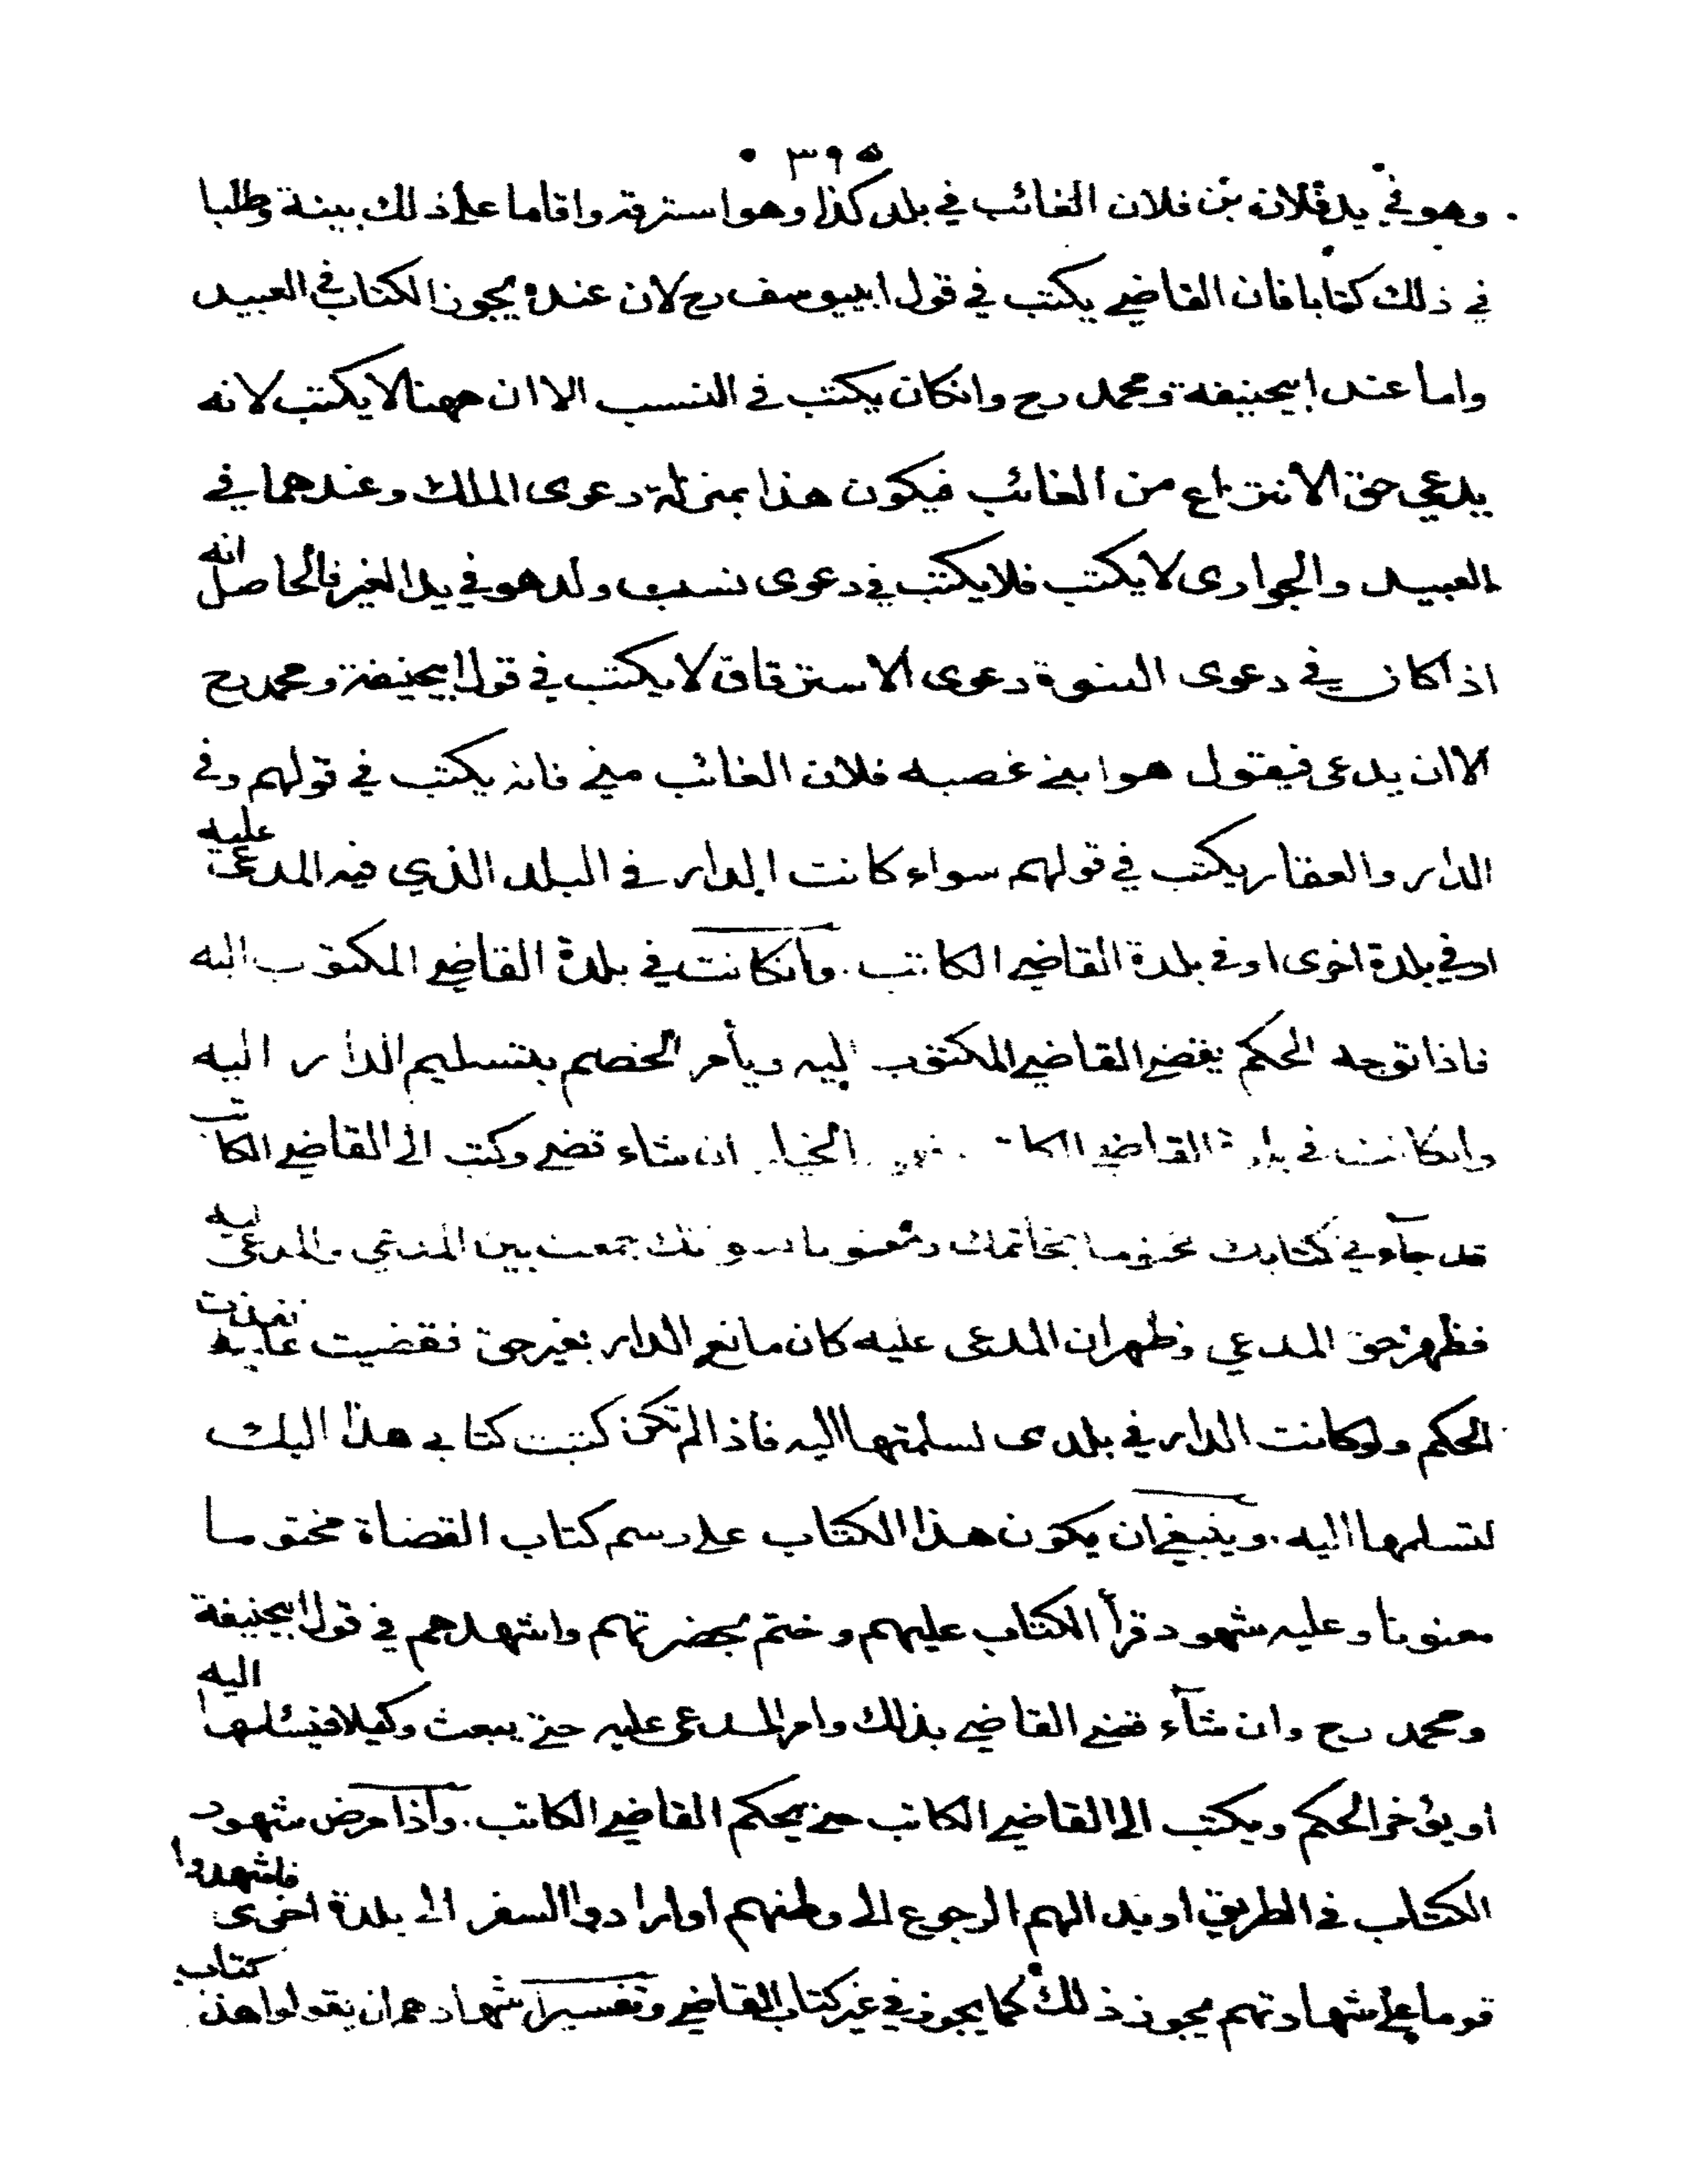 ٣٩٥
وهو في يد فلان بن فلان الغائب في بلد كذا وهو استرقه واقاما على ذلك بينة وطلبا
في ذلك كتابا فان القاضي يكتب في قول ابييوسف رح لان عنده يجوز الكتاب في العبيد
واما عند ابيحنيفة ومحمد رح وانكان يكتب في النسب الا ان ههنا لا يكتب لانه
يدعي حق الانتزاع من الغائب فيكون هذا بمنزلة دعوى الملك وعندهما في
العبيد والجوارى لا يكتب فلا يكتب في دعوى نسب ولد هو في يد الغير فالحاصل انه
اذا كان في دعوى البنوة دعوى الاسترقاق لا يكتب في قول ابيحنيفة ومحمد رح
الا ان يدعى فيقول هو ابني غصبه فلان الغائب مني فانه يكتب في قولهم وفي
الدار والعقار يكتب في قولهم سواء كانت الدار في البلد الذي فيه المدعى عليه
او في بلدة اخرى او في بلدة القاضي الكاتب . وانكانت في بلدة القاضي المكتوب اليه
فاذا توجه الحكم يقضي القاضي المكتوب اليه ويأمر الخصم بتسليم الدار اليه
وانكانت في بلدة القاضي الكاتب الخيار ان شاء قضى وكتب الى القاضي الكاتب
قد جآءني كتابك مختوما بخاتمك ومعنونا جمعت بين المدعي والمدعى عليه
فظهر حق المدعي وظهر ان المدعى عليه كان مانع الدار بغير حق فقضيت عليه نفذت
الحكم ولوكانت الدار في بلدى لسلمتها اليه فاذا لم تكن كتبت كتابي هذا اليك
لتسلمها اليه . وينبغي ان يكون هذا الكتاب على رسم كتاب القضاة مختوما
معنونا وعليه شهود قرأ الكتاب عليهم وختم بحضرتهم واشهدهم في قول ابيحنيفة
ومحمد رح وان شآء قضى القاضي بذلك وامر المدعى عليه حتى يبعث وكيلا فيسلمها اليه
او يؤخر الحكم ويكتب الى القاضي الكاتب حتى يحكم القاضي الكاتب . واذا مرض شهود
الكتاب في الطريق او بدا لهم الرجوع الى وطنهم او ارادوا السفر الى بلدة اخرى فاشهدوا
قوما على شهادتهم يجوز ذلك كما يجوز في غير كتاب القاضي وتفسير اشهادهم ان يقولوا هذا كتاب